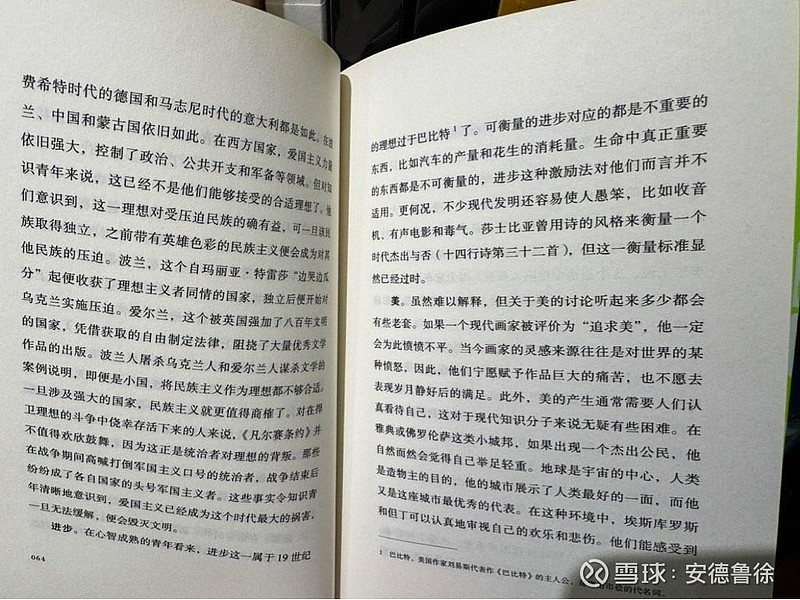 费希特时代的德国和马志尼时代的意大利都是如此。在
兰、中国和蒙古国依旧如此。在西方国家，爱国主义力量
依旧强大，控制了政治、公共开支和军备等领域。但对知
识青年来说，这已经不是他们能够接受的合适理想了。他
们意识到，这一理想对受压迫民族的确有益，可一旦该民
族取得独立，之前带有英雄色彩的民族主义便会成为对其
他民族的压迫。波兰，这个自玛丽亚·特雷莎“边哭边瓜
分”起便收获了理想主义者同情的国家，独立后便开始对
乌克兰实施压迫。爱尔兰，这个被英国强加了八百年文明
的国家，凭借获取的自由制定法律，阻挠了大量优秀文学
作品的出版。波兰人屠杀乌克兰人和爱尔兰人谋杀文学的
案例说明，即便是小国，将民族主义作为理想都不够合适。
一旦涉及强大的国家，民族主义就更值得商榷了。对在捍
卫理想的斗争中侥幸存活下来的人来说，《凡尔赛条约》并
不值得欢欣鼓舞，因为这正是统治者对理想的背叛。那些
在战争期间高喊打倒军国主义口号的统治者，战争结束后
纷纷成了各自国家的头号军国主义者。这些事实令知识青
年清晰地意识到，爱国主义已经成为这个时代最大的祸害，
一旦无法缓解，便会毁灭文明。
进步。在心智成熟的青年看来，进步这一属于 19 世纪
064
的理想过于巴比特¹了。可衡量的进步对应的都是不重要的
东西，比如汽车的产量和花生的消耗量。生命中真正重要
的东西都是不可衡量的，进步这种激励法对他们而言并不
适用。更何况，不少现代发明还容易使人愚笨，比如收音
机、有声电影和毒气。莎士比亚曾用诗的风格来衡量一个
时代杰出与否（十四行诗第三十二首），但这一衡量标准显
然已经过时。
美。虽然难以解释，但关于美的讨论听起来多少都会
有些老套。如果一个现代画家被评价为“追求美”，他一定
会为此愤愤不平。当今画家的灵感来源往往是对世界的某
种愤怒，因此，他们宁愿赋予作品巨大的痛苦，也不愿去
表现岁月静好后的满足。此外，美的产生通常需要人们认
真看待自己，这对于现代知识分子来说无疑有些困难。在
雅典或佛罗伦萨这类小城邦，如果出现一个杰出公民，他
自然而然会觉得自己举足轻重。地球是宇宙的中心，人类
是造物主的目的，他的城市展示了人类最好的一面，而他
又是这座城市最优秀的代表。在这种环境中，埃斯库罗斯
和但丁可以认真地审视自己的欢乐和悲伤。他们能感受到
1 巴比特，美国作家刘易斯代表作《巴比特》的主人公，市侩的代名词。
雪球：安德鲁徐